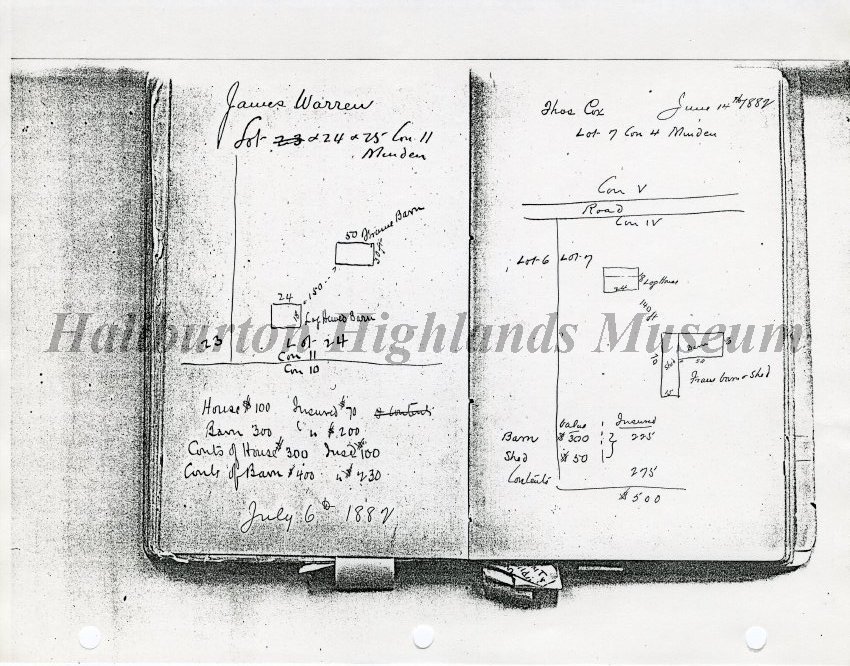 James Warren
Lot 23 & 24 & 25 Con 11
Minden
50 Frame Barn
30 ft
150
24
18
Log Hewed Barn
23 Lot 24
Con 11
Con 10
House $100 Insured $70 & Contents
Barn 300 " " $200
Conts of House $300 Insd $100
Conts of Barn $400 " $230
July 6th 1882
Thos Cox June 14th 1882
Lot 7 Con 4 Minden
Con V
Road
Con IV
Lot 6 Lot 7
24 18 Log House
140 ft
Barn
70 Shed 50
Frame barn & Shed
Value Insured
Barn $300 225
Shed $50
Contents 275
$500
Haliburton Highlands Museum